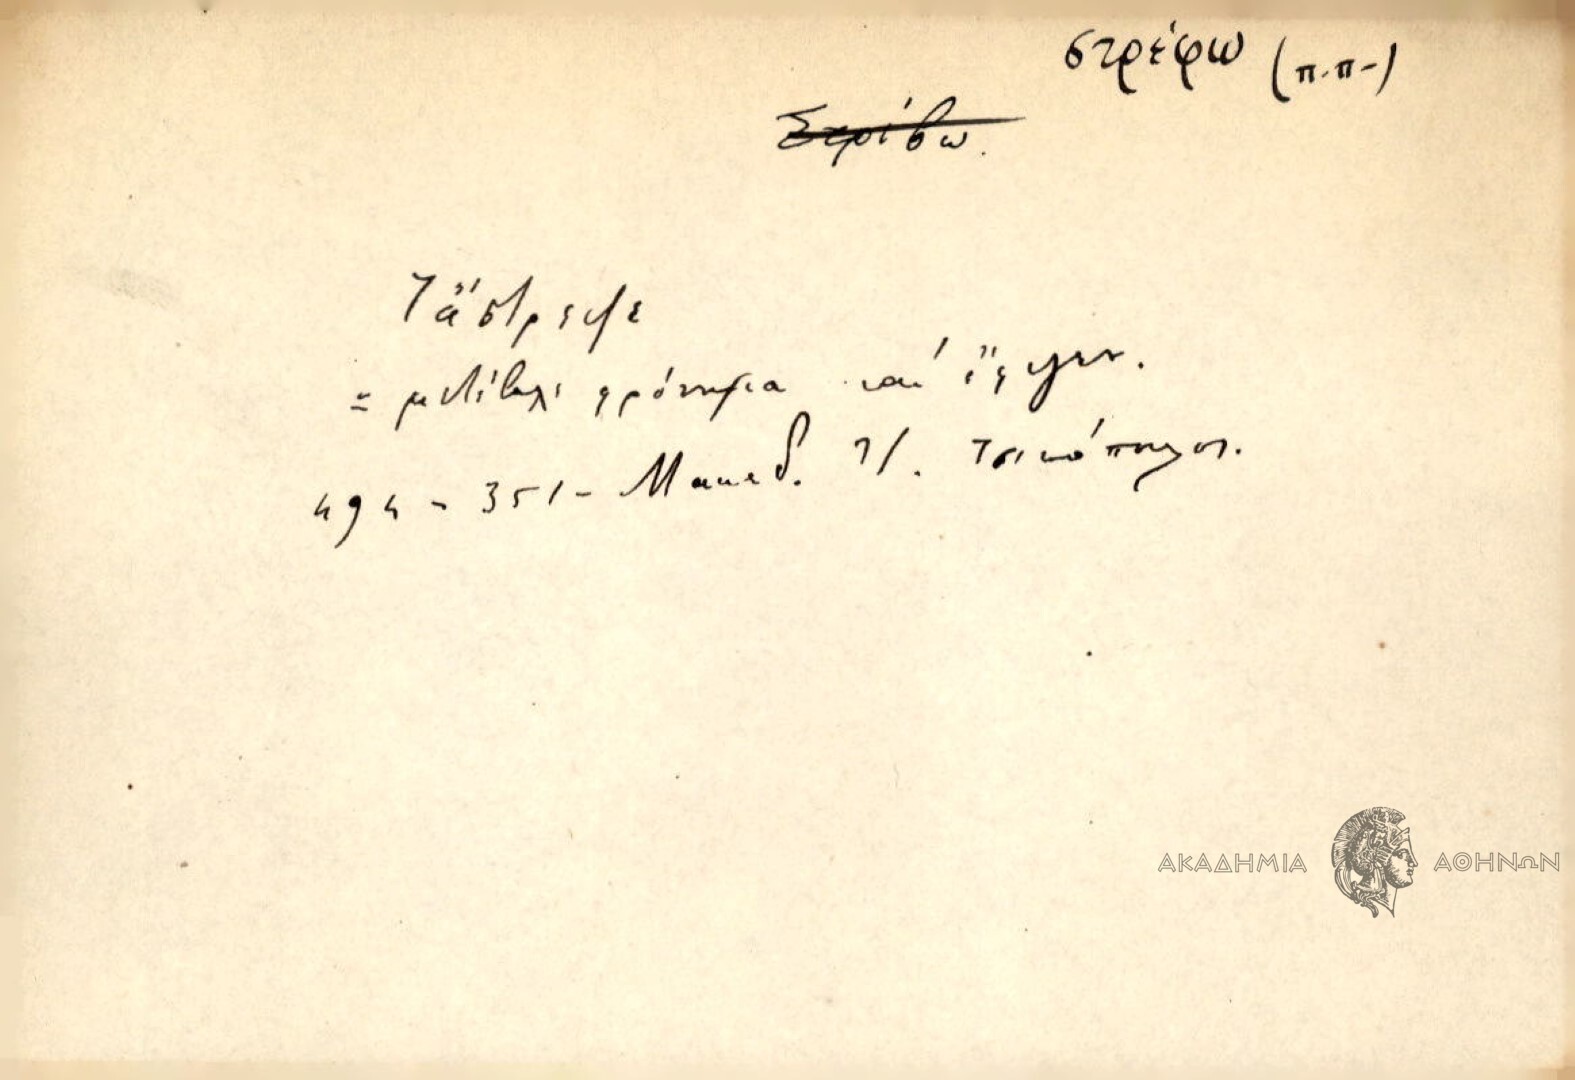 στρέφω (π.π-)
Στρίβω.
Τἄστρεψε
= μετέβαλε φρόνημα καὶ ἔφυγεν.
494 - 351 - Μακεδ. Τσικόπουλος.
ΑΚΑΔΗΜΙΑ ΑΘΗΝΩΝ